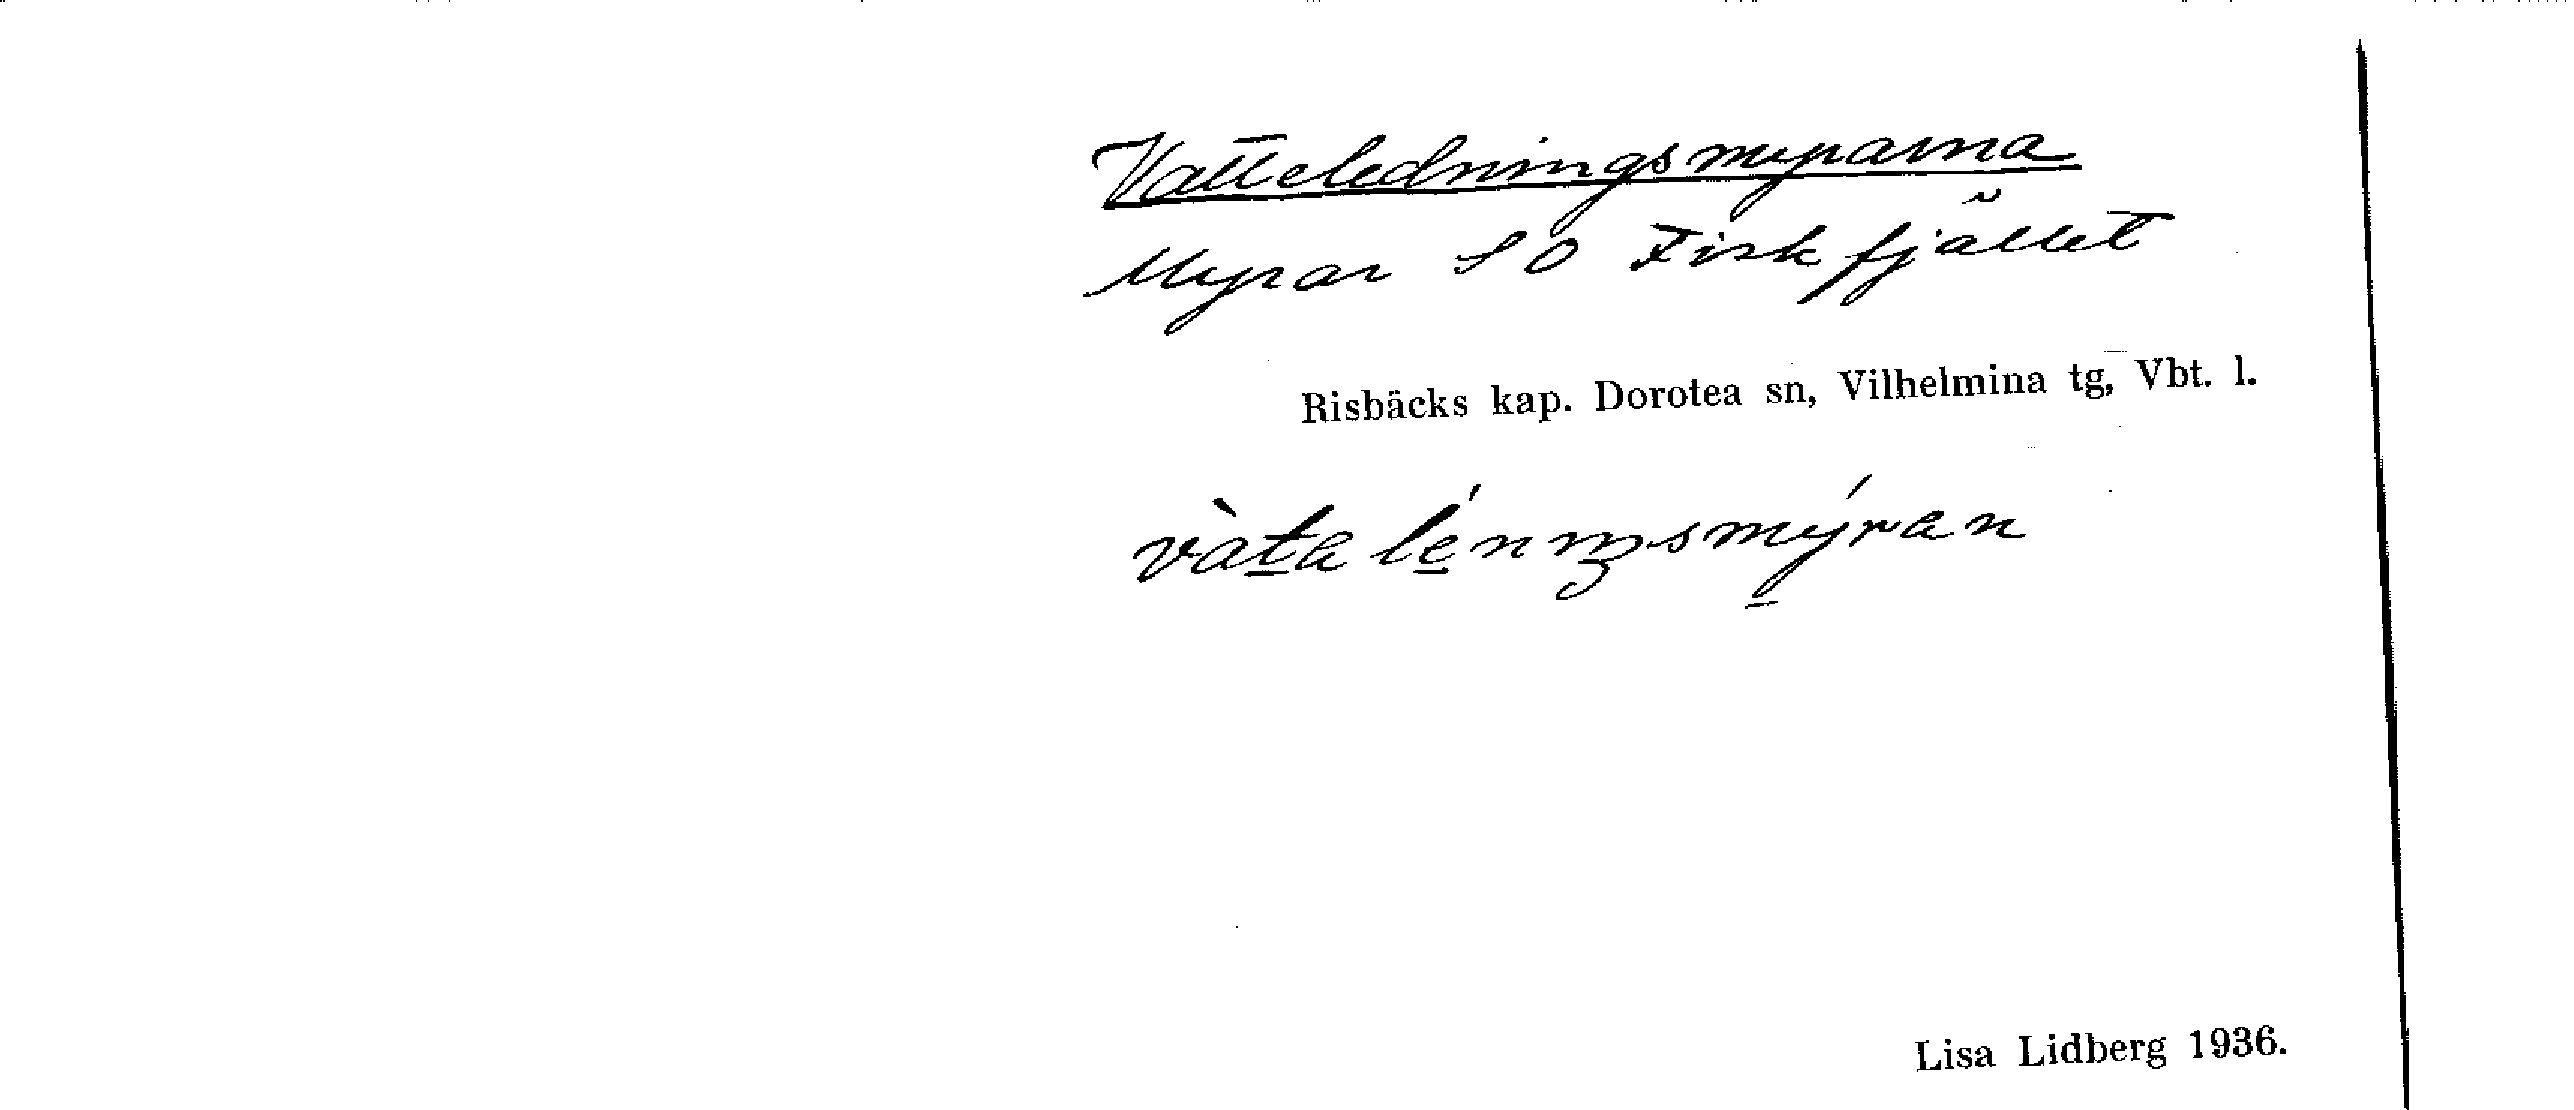 Vatteledningsmyrarna
Myrar SO Fiskfjället
Risbäcks kap. Dorotea sn, Vilhelmina tg, Vbt. l.
vàta lénıŋsmýran
Lisa Lidberg 1936.